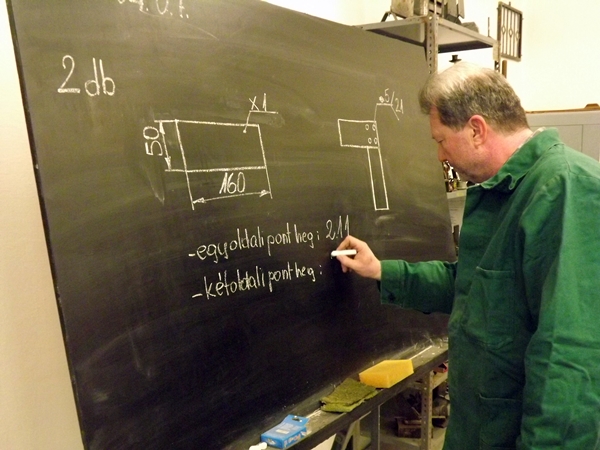 2 db
x1
50
160
5/21
-egyoldali pontheg: 2.11
-kétoldali pontheg: